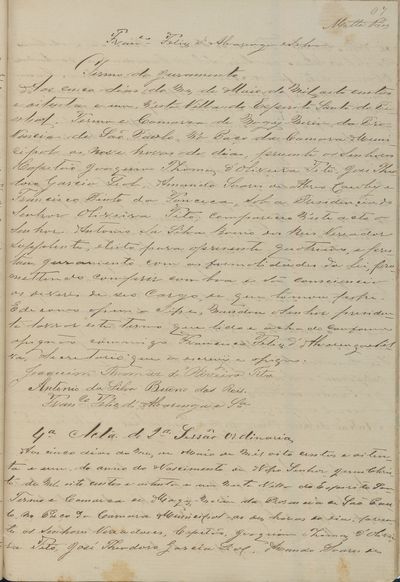 67
Franc.co Felez d'Alvarenga e Silva
Termo de juramento
Aos cinco dias do mez de Maio de mil oito centos
e oitenta e um, nesta Villa do Espirito Santo do
Termo e Comarca de Mogy Mirim da Pro
vincia de São Paulo, no Paço da Camara Muni
cipal as nove horas do dia, presente os senhores
Capitão Joaquim Thomaz d'Oliveira Tito, José Theo
doro Garcia Leal,
Francisco Pinto da Fonceca, sob a Presidencia do
Senhor Oliveira Tito, Compareceu neste acto o
Senhor Antonio da Silva Bueno dos Reis Vereador
supplente, eleito para o presente quatrienio, e pres
tou juramento com as formalidades da lei, pro
mettendo cumprir com boa e sã consciencia
os deveres de seo Cargo, e
E de como o disse, mandou o senhor presiden
te lavrar este termo que lido e achado conforme
assignão comigo Francisco Felez d'Alvarenga e Sil
va, Secretario que o escrevi e assigno.
Joaquim Thomaz de Oliveira Tito
Antonio da Silva Bueno dos Reis.
Franco Felez d'Alvarenga e Sa
4a Acta da 2a Sessão Ordinaria
Aos cinco dias do mez de Maio de mil oito centos e oiten
ta e um, do anno do Nascimento de Nosso Senhor Jesus Chris
to de mil oito centos e oitenta e um nesta Villa do Espirito
Termo e Comarca de Mogy Mirim da Provincia de São Pau
lo, no Paço da Camara Municipal as dez horas do dia, presen
te os Senhores Vereadores, Capitão, Joaquim Thomaz d'Olivei
ra Tito, José Theodoro Garcia Leal,